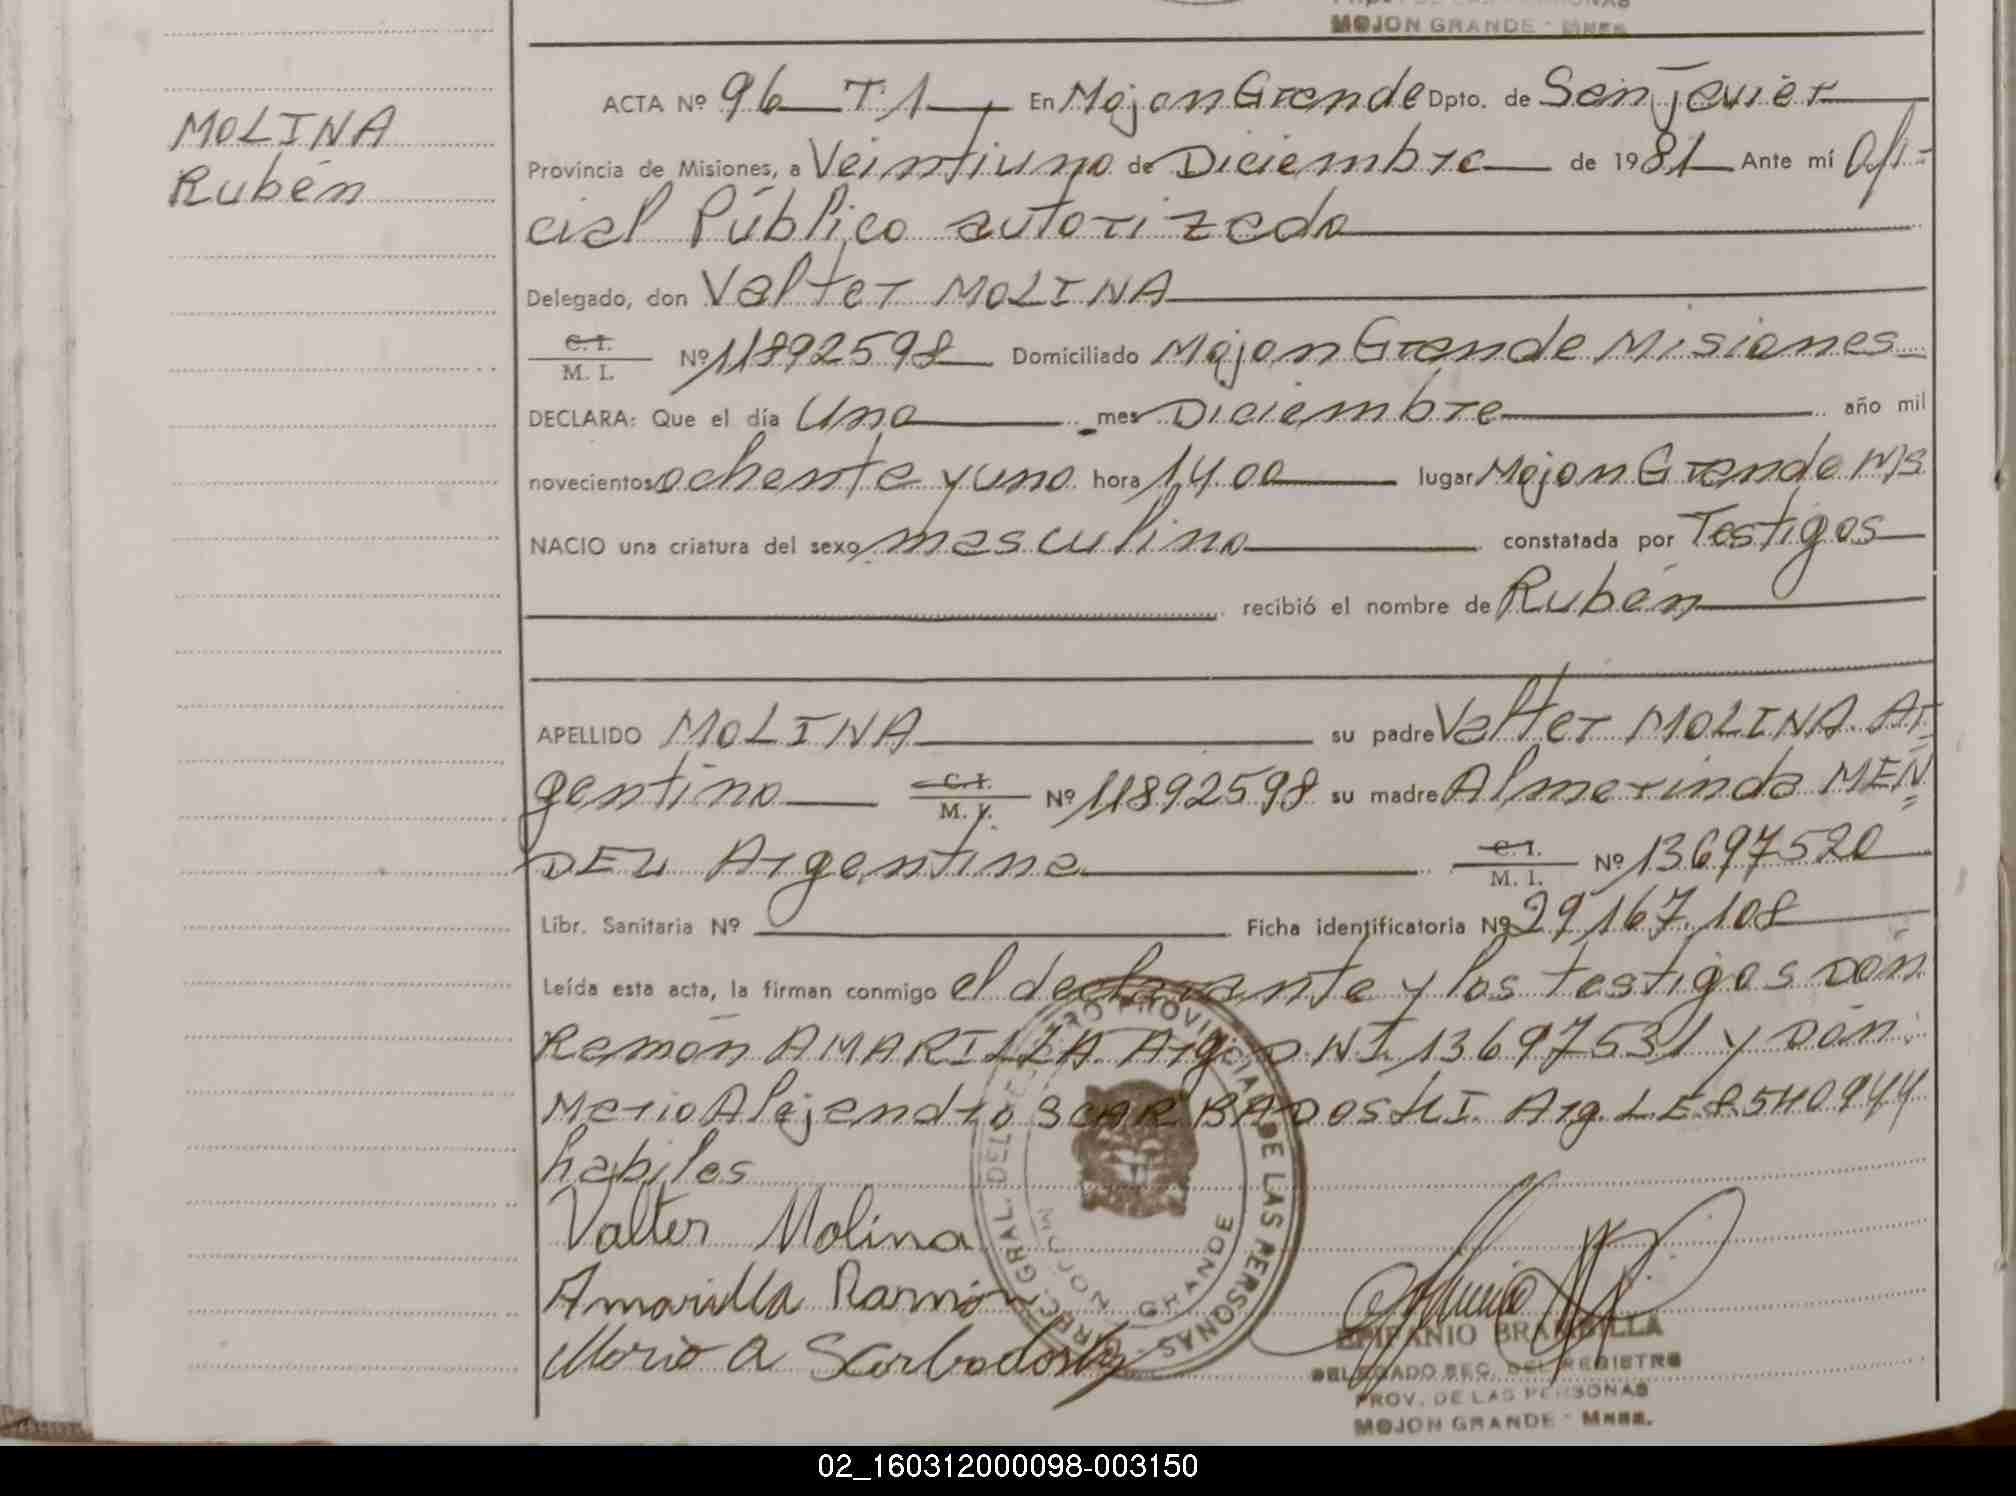 MOJON GRANDE - MNES.
MOLINA
Rubén
ACTA Nº 96 T 1 En Mojon Grande Dpto. de San Javier
Provincia de Misiones, a Veintiuno de Diciembre de 1981 Ante mí Ofi-
cial Público autorizado
Delegado, don Valter MOLINA
C. I.
M. I. Nº 11892598 Domiciliado Mojon Grande Misiones
DECLARA: Que el día Uno mes Diciembre año mil
novecientos ochenta y uno hora 14 00 lugar Mojon Grande Ms
NACIO una criatura del sexo masculino constatada por Testigos
recibió el nombre de Rubén
APELLIDO MOLINA su padre Valter MOLINA Ar
gentino C. I. M. I. Nº 11892598 su madre Almerinda MEN
DEZ Argentina C. I. M. I. Nº 13697520
Libr. Sanitaria Nº Ficha identificatoria Nº 29.167.108
Leída esta acta, la firman conmigo el declarante y los testigos Dón
Ramón AMARILLA Arg. D.N.I. 13697531 y Dón
Mario Alejandro SCARBADOSKI Arg. LE 8540944
habiles
Valter Molina
Amarilla Ramón
Mario A Scarbadosky
DIREC. GRAL. DEL REGISTRO PROVINCIAL DE LAS PERSONAS
MOJON GRANDE
EPIFANIO BRAMBILLA
DELEGADO SEC. DEL REGISTRO
PROV. DE LAS PERSONAS
MOJON GRANDE - MNES.
02_160312000098-003150